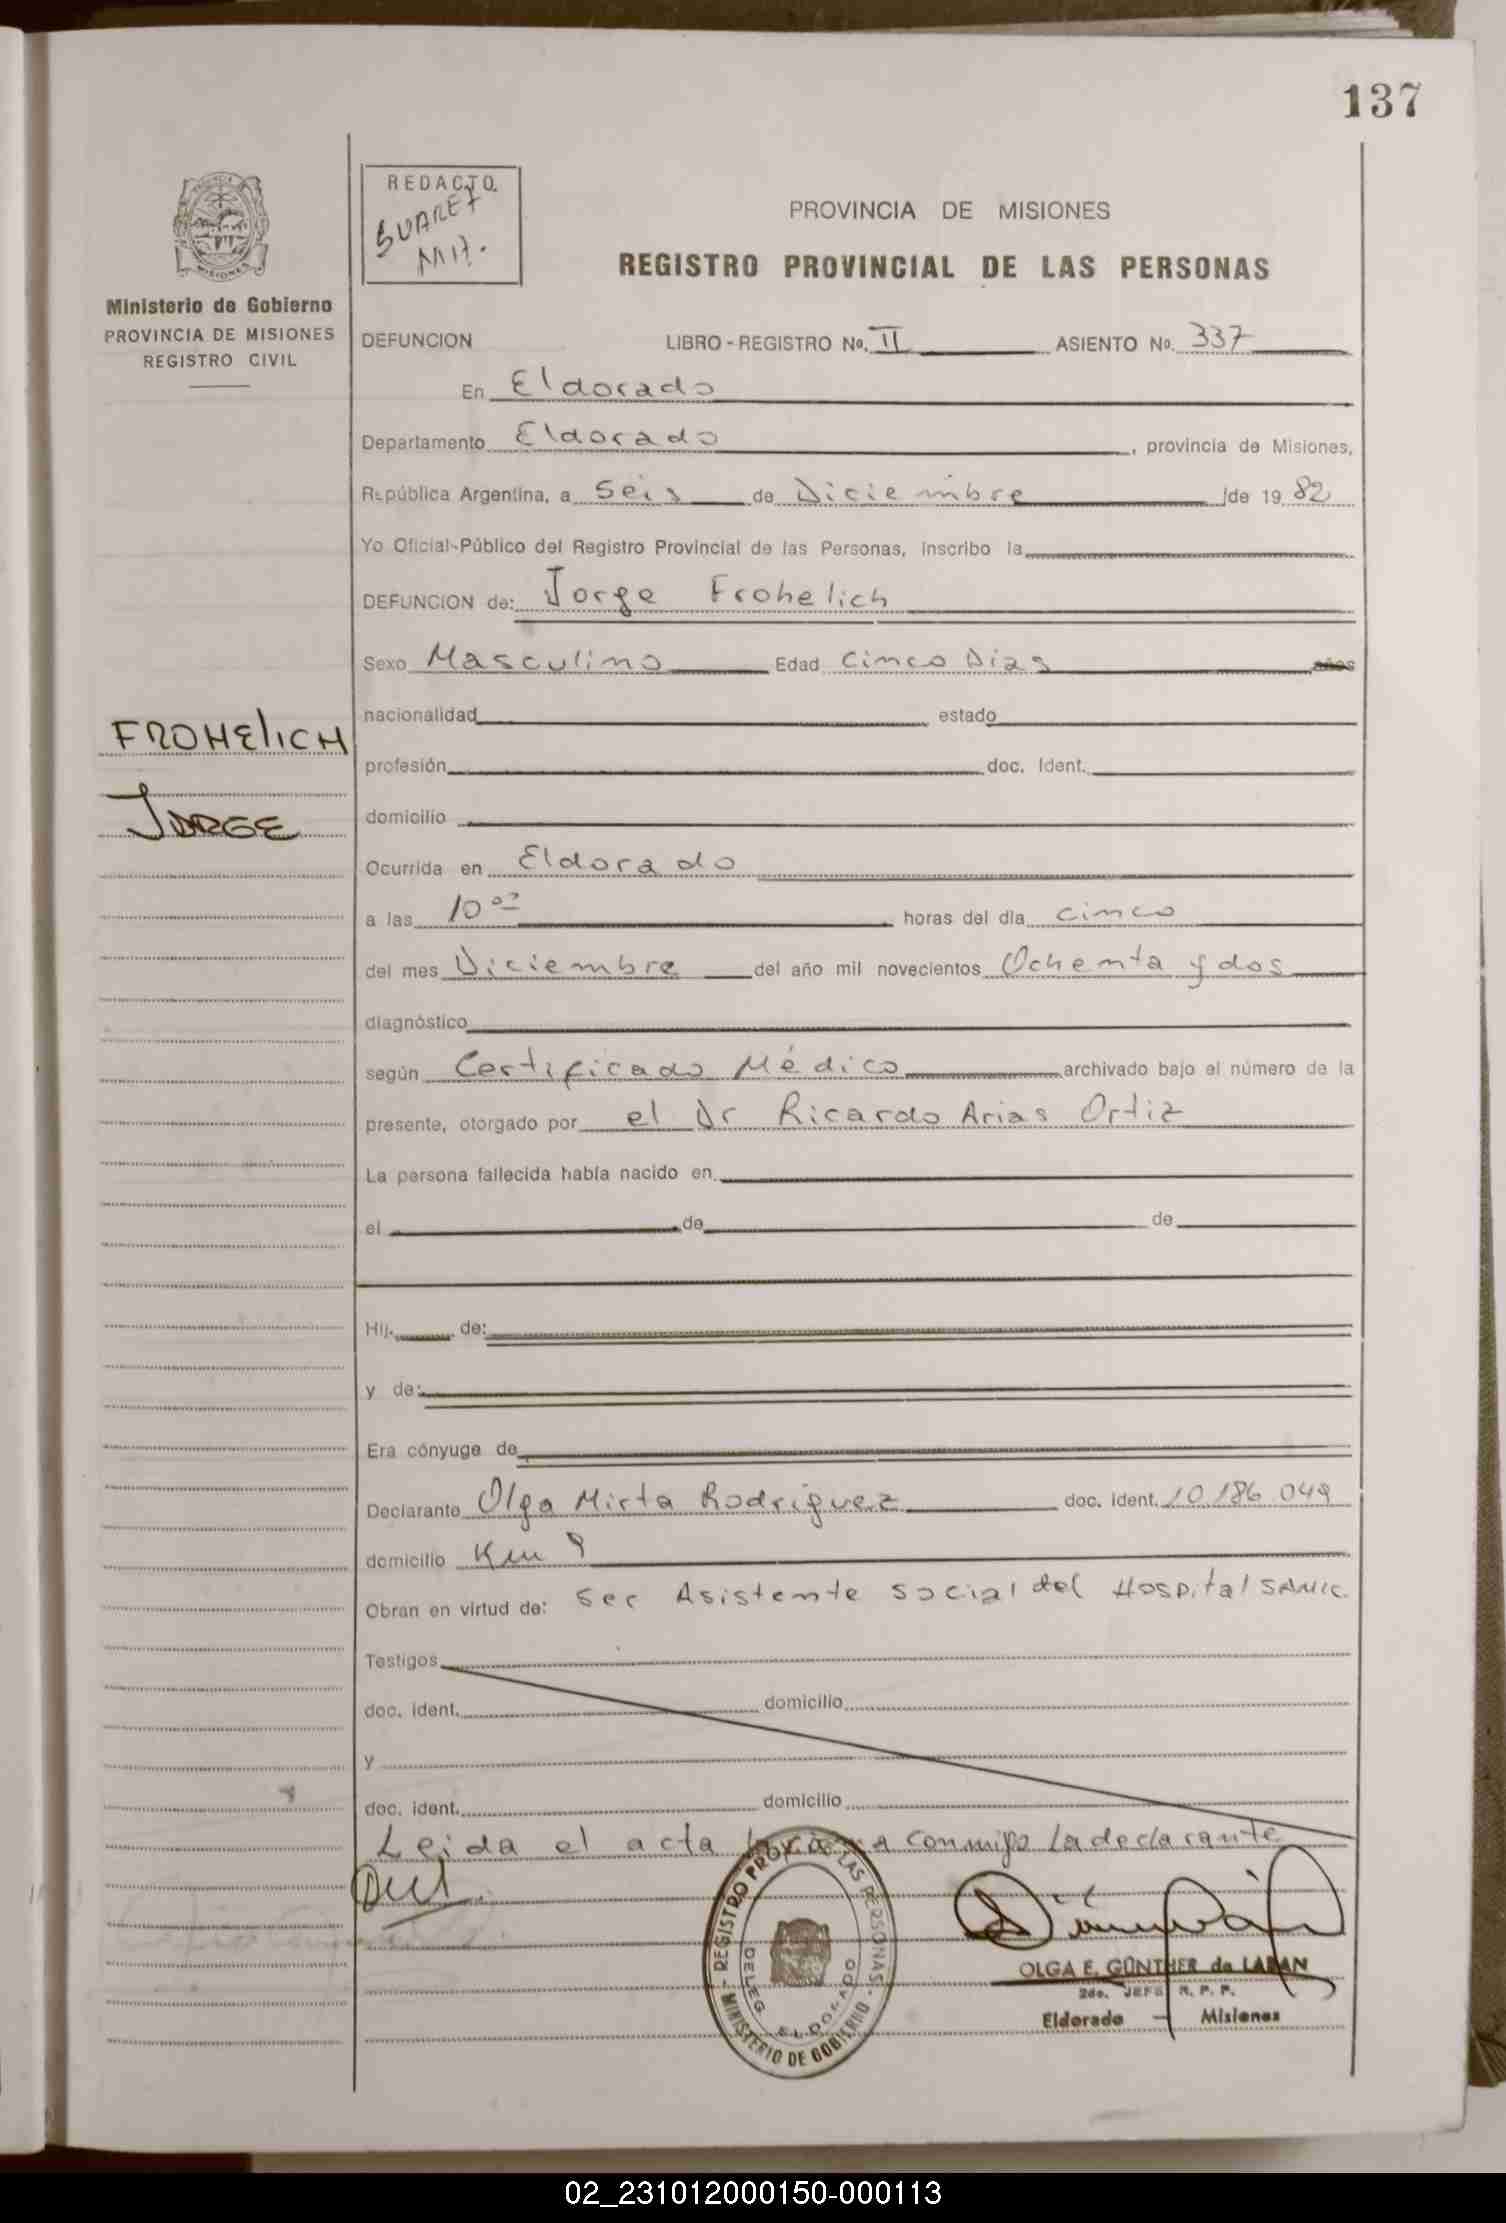 137
REDACTO
SUAREZ
MH.
PROVINCIA DE MISIONES
REGISTRO PROVINCIAL DE LAS PERSONAS
MISIONES
Ministerio de Gobierno
PROVINCIA DE MISIONES
REGISTRO CIVIL
DEFUNCION LIBRO - REGISTRO Nº. II ASIENTO Nº. 337
En Eldorado
Departamento Eldorado, provincia de Misiones,
República Argentina, a Seis de Diciembre de 19 82
Yo Oficial-Público del Registro Provincial de las Personas, inscribo la
DEFUNCION de: Jorge Frohelich
Sexo Masculino Edad Cinco Dias años
nacionalidad estado
FROHElICH
profesión doc. Ident.
JORGE
domicilio
Ocurrida en Eldorado
a las 10 horas del día cinco
del mes Diciembre del año mil novecientos Ochenta y dos
diagnóstico
según Certificado Médico archivado bajo el número de la
presente, otorgado por el Dr Ricardo Arias Ortiz
La persona fallecida había nacido en
el de de
Hij. de:
y de:
Era cónyuge de
Declarante Olga Mirta Rodriguez doc. ident. 10 186 049
domicilio Km 9
Obran en virtud de: Ser Asistente Social del Hospital SAMIC.
Testigos
doc. ident. domicilio
y
doc. ident. domicilio
Leida el acta la firma conmigo la declarante
REGISTRO PROV. DE LAS PERSONAS - MINISTERIO DE GOBIERNO -
DELEG. ELDORADO
OLGA E. GÜNTHER de LABAN
2do. JEFE R. P. P.
Eldorado — Misiones
02_231012000150-000113